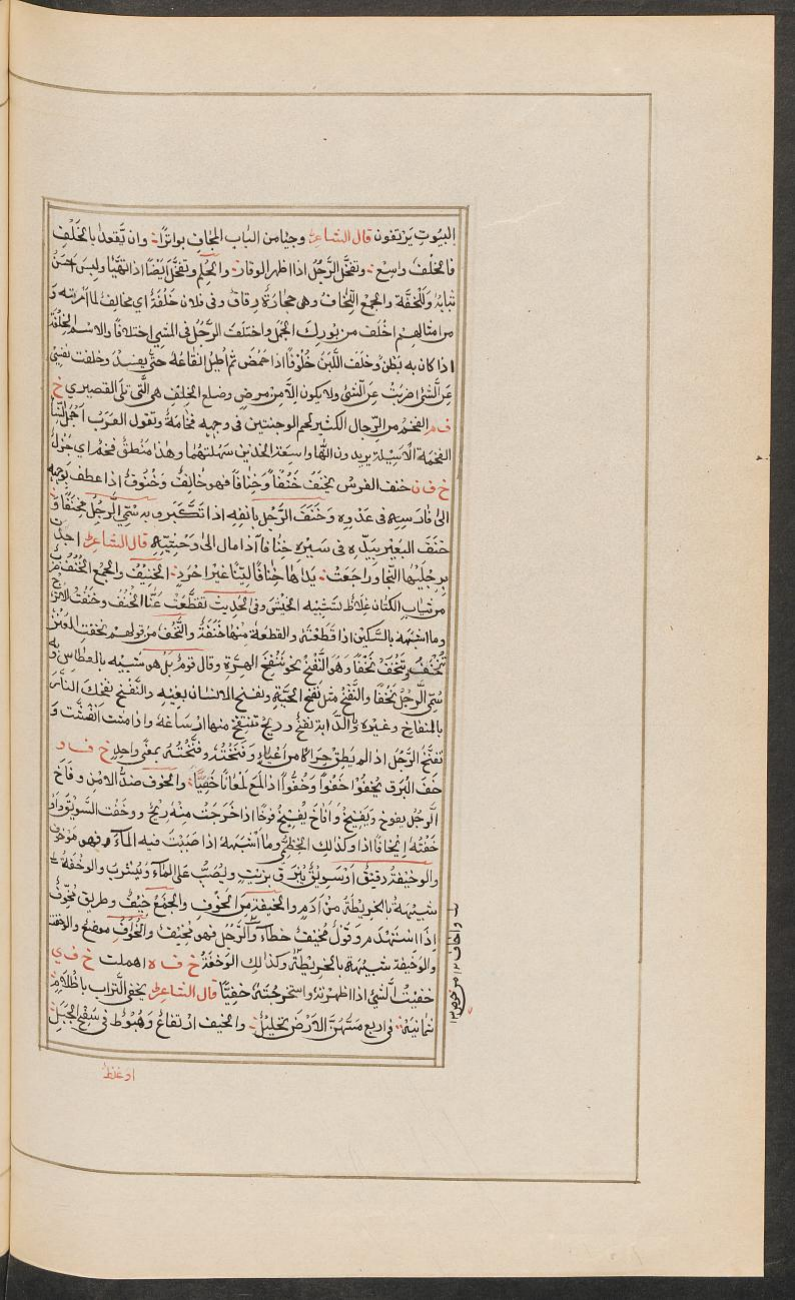 البيوت يزيفون قال الشاعر وجئنا من الباب المجاف بواترا وان تقعد بالخلف
فالخلف واسع وتفخل الرجل اذا اظهر الوقار والحلم وتفخل ايضا اذا تهيا ولبس احسن
ثيابه واللخفة والجمع اللخاف وهى حجارة رقاق وفى فلان خلفة اى مخالف لما امرته و
من امثالهم اخلف من بورك الجمل واختلف الرجل فى المشى اختلافا والاسم الخلفة
اذا كان به بطن وخلف اللبن خلوفا اذا حمض ثم اطيل انقاعه حتى يفسد وخلفت نفسى
عن الشئ اضربت عن الشئ ولا يكون الا من مرض وضلع الخلف هى التى تلى القصيرى خ
ف م الفخم من الرجال الكثير لحم الوجنتين فى وجهه فخامة وتقول العرب اجمل النسا
الفخمة الاسيلة يريدون انها واسعة الخدين سهلتهما وهذا منطق فخم اى جزل
خ ف ن خنف الفرس يخنف خنفا وخنافا فهو خانف وخنوف اذا عطف بوجهه
الى فارسه فى عدوه وخنف الرجل بانفه اذا تكبر وبه سمى الرجل مخنفا و
خنف البعير بيده فى سيره خنافا اذا مال الى وحشيه قال الشاعر اجدت
برجليها النجا وراجعت يداها خنافا لينا غير احرد الخنيف والجمع الخنف ضرب
من ثياب الكتان غلاظ تشبيه الخيش وفى الحديث تقطعت عنا الخنف وخنفت الاترج
وما اشبهه بالسكين اذا قطعته والقطعة منها خنفة والنخف من قولهم نخفت العنز
تنخف وتنخف نخفا وهو النفخ نحو نفخ الهرة وقال قوم بل هو شبيه بالعطاس وبه
سمى الرجل نخفا والنفخ مثل نفخ الحية ونفخ الانسان بفيه والنفخ نفخك النار
بالمنفاخ وغيره والدابة نفخ وريح تنتفخ منها ارساغه واذا مشت انفشت و
نفخ الرجل اذا لم يطق حراكا من اعياء وفنخته وفنخته بمعنى واحد خ ف و
خفا البرق يخفو خفوا وخفوا اذا لمع لمعانا خفيا والخوف ضد الامن وفاخ
الرجل يفوخ ويفيخ وافاخ يفيخ فوخا اذا خرجت منه ريح ووخفت السويق واو
خفته ايخافا اذا وكذلك الخطمى وما اشبهه اذا صببت فيه الماء فهو موخوف
والوخيفة دقيق او سويق يبرق بزيت ويصب على الماء ويشرب والوخفة
شبيهة بالخريطة من ادم والخيفة من الخوف والجمع خيف وطريق مخوف
اذا استهدم وقول مخيف خطاء والرجل فهو مخيف والخوف موضع والوخفة
والوخيفة شبيهة بالخريطة وكذلك الوخفة خ ف ه اهملت خ ف ي
خفيت الشئ اذا اظهرته واستخرجته خفيا قال الشاعر يخفى التراب باظلاف
ثمانية فى اربع مسهن الارض تحليل والخيف ارتفاع وهبوط فى سفح الجبل
او غلظ